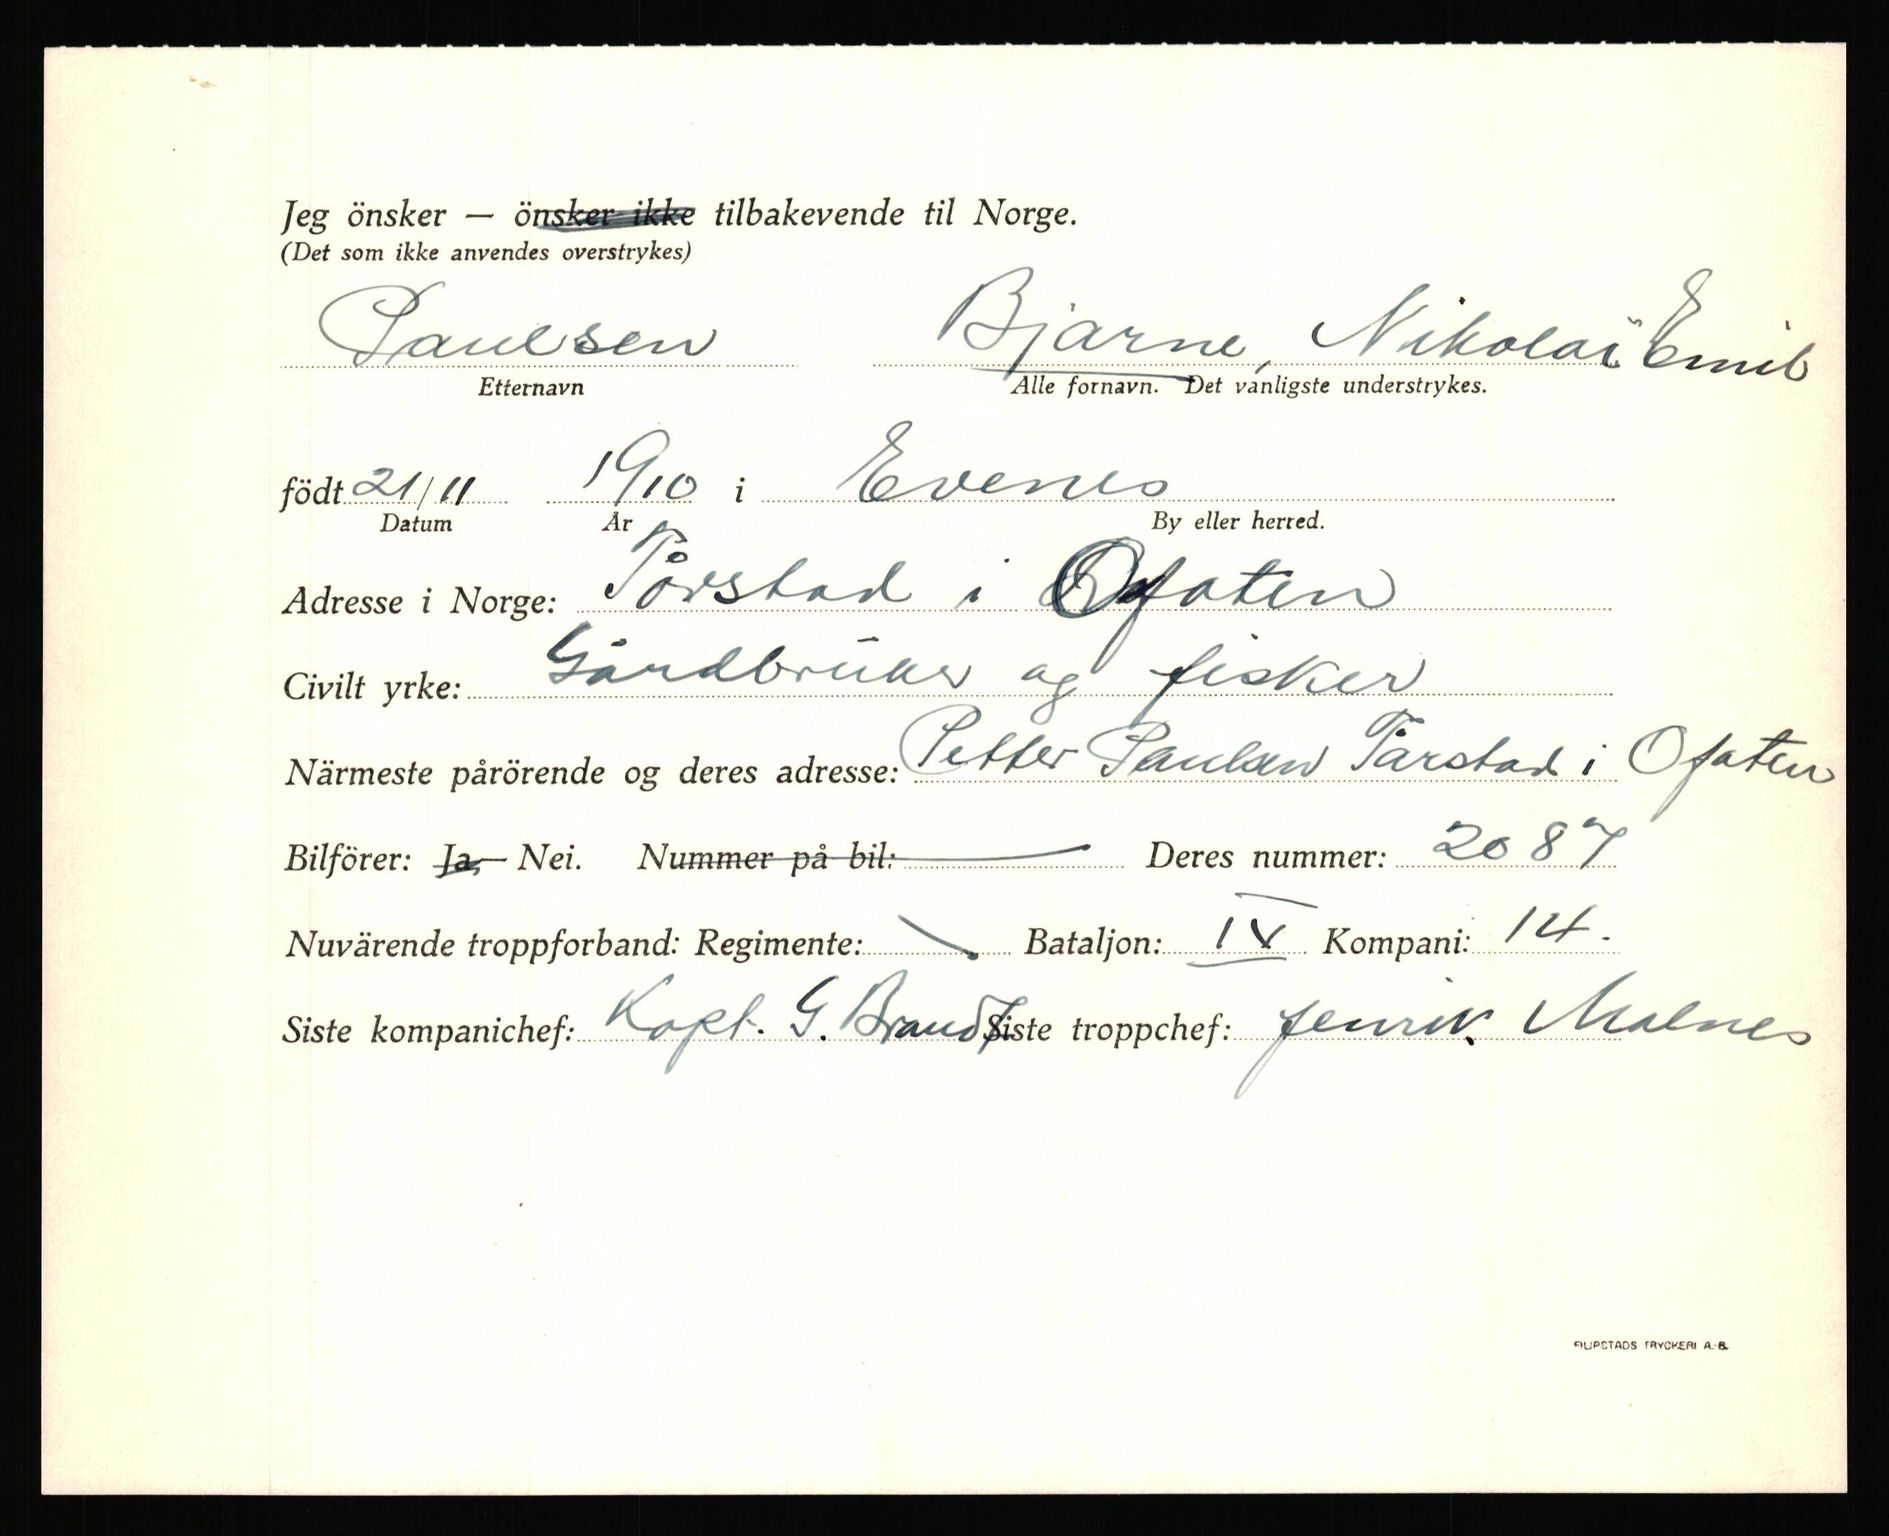 Jeg önsker — önsker ikke tilbakevende til Norge.
(Det som ikke anvendes overstrykes)
Paulsen Bjarne, Nikolai Emil
Etternavn Alle fornavn. Det vanligste understrykes.
födt 21/11 1910 i Evenes
Datum År By eller herred.
Adresse i Norge: Tårstad i Ofoten
Civilt yrke: Gårdbruker og fisker
Närmeste pårörende og deres adresse: Petter Paulsen Tårstad i Ofoten
Bilförer: Ja — Nei. Nummer på bil: Deres nummer: 2087
Nuvärende troppforband: Regimente: Bataljon: IV Kompani: 14.
Siste kompanichef: Kapt. G. Brandt Siste troppchef: fenrik. Malnes
FILIPSTADS TRYCKERI A.-B.